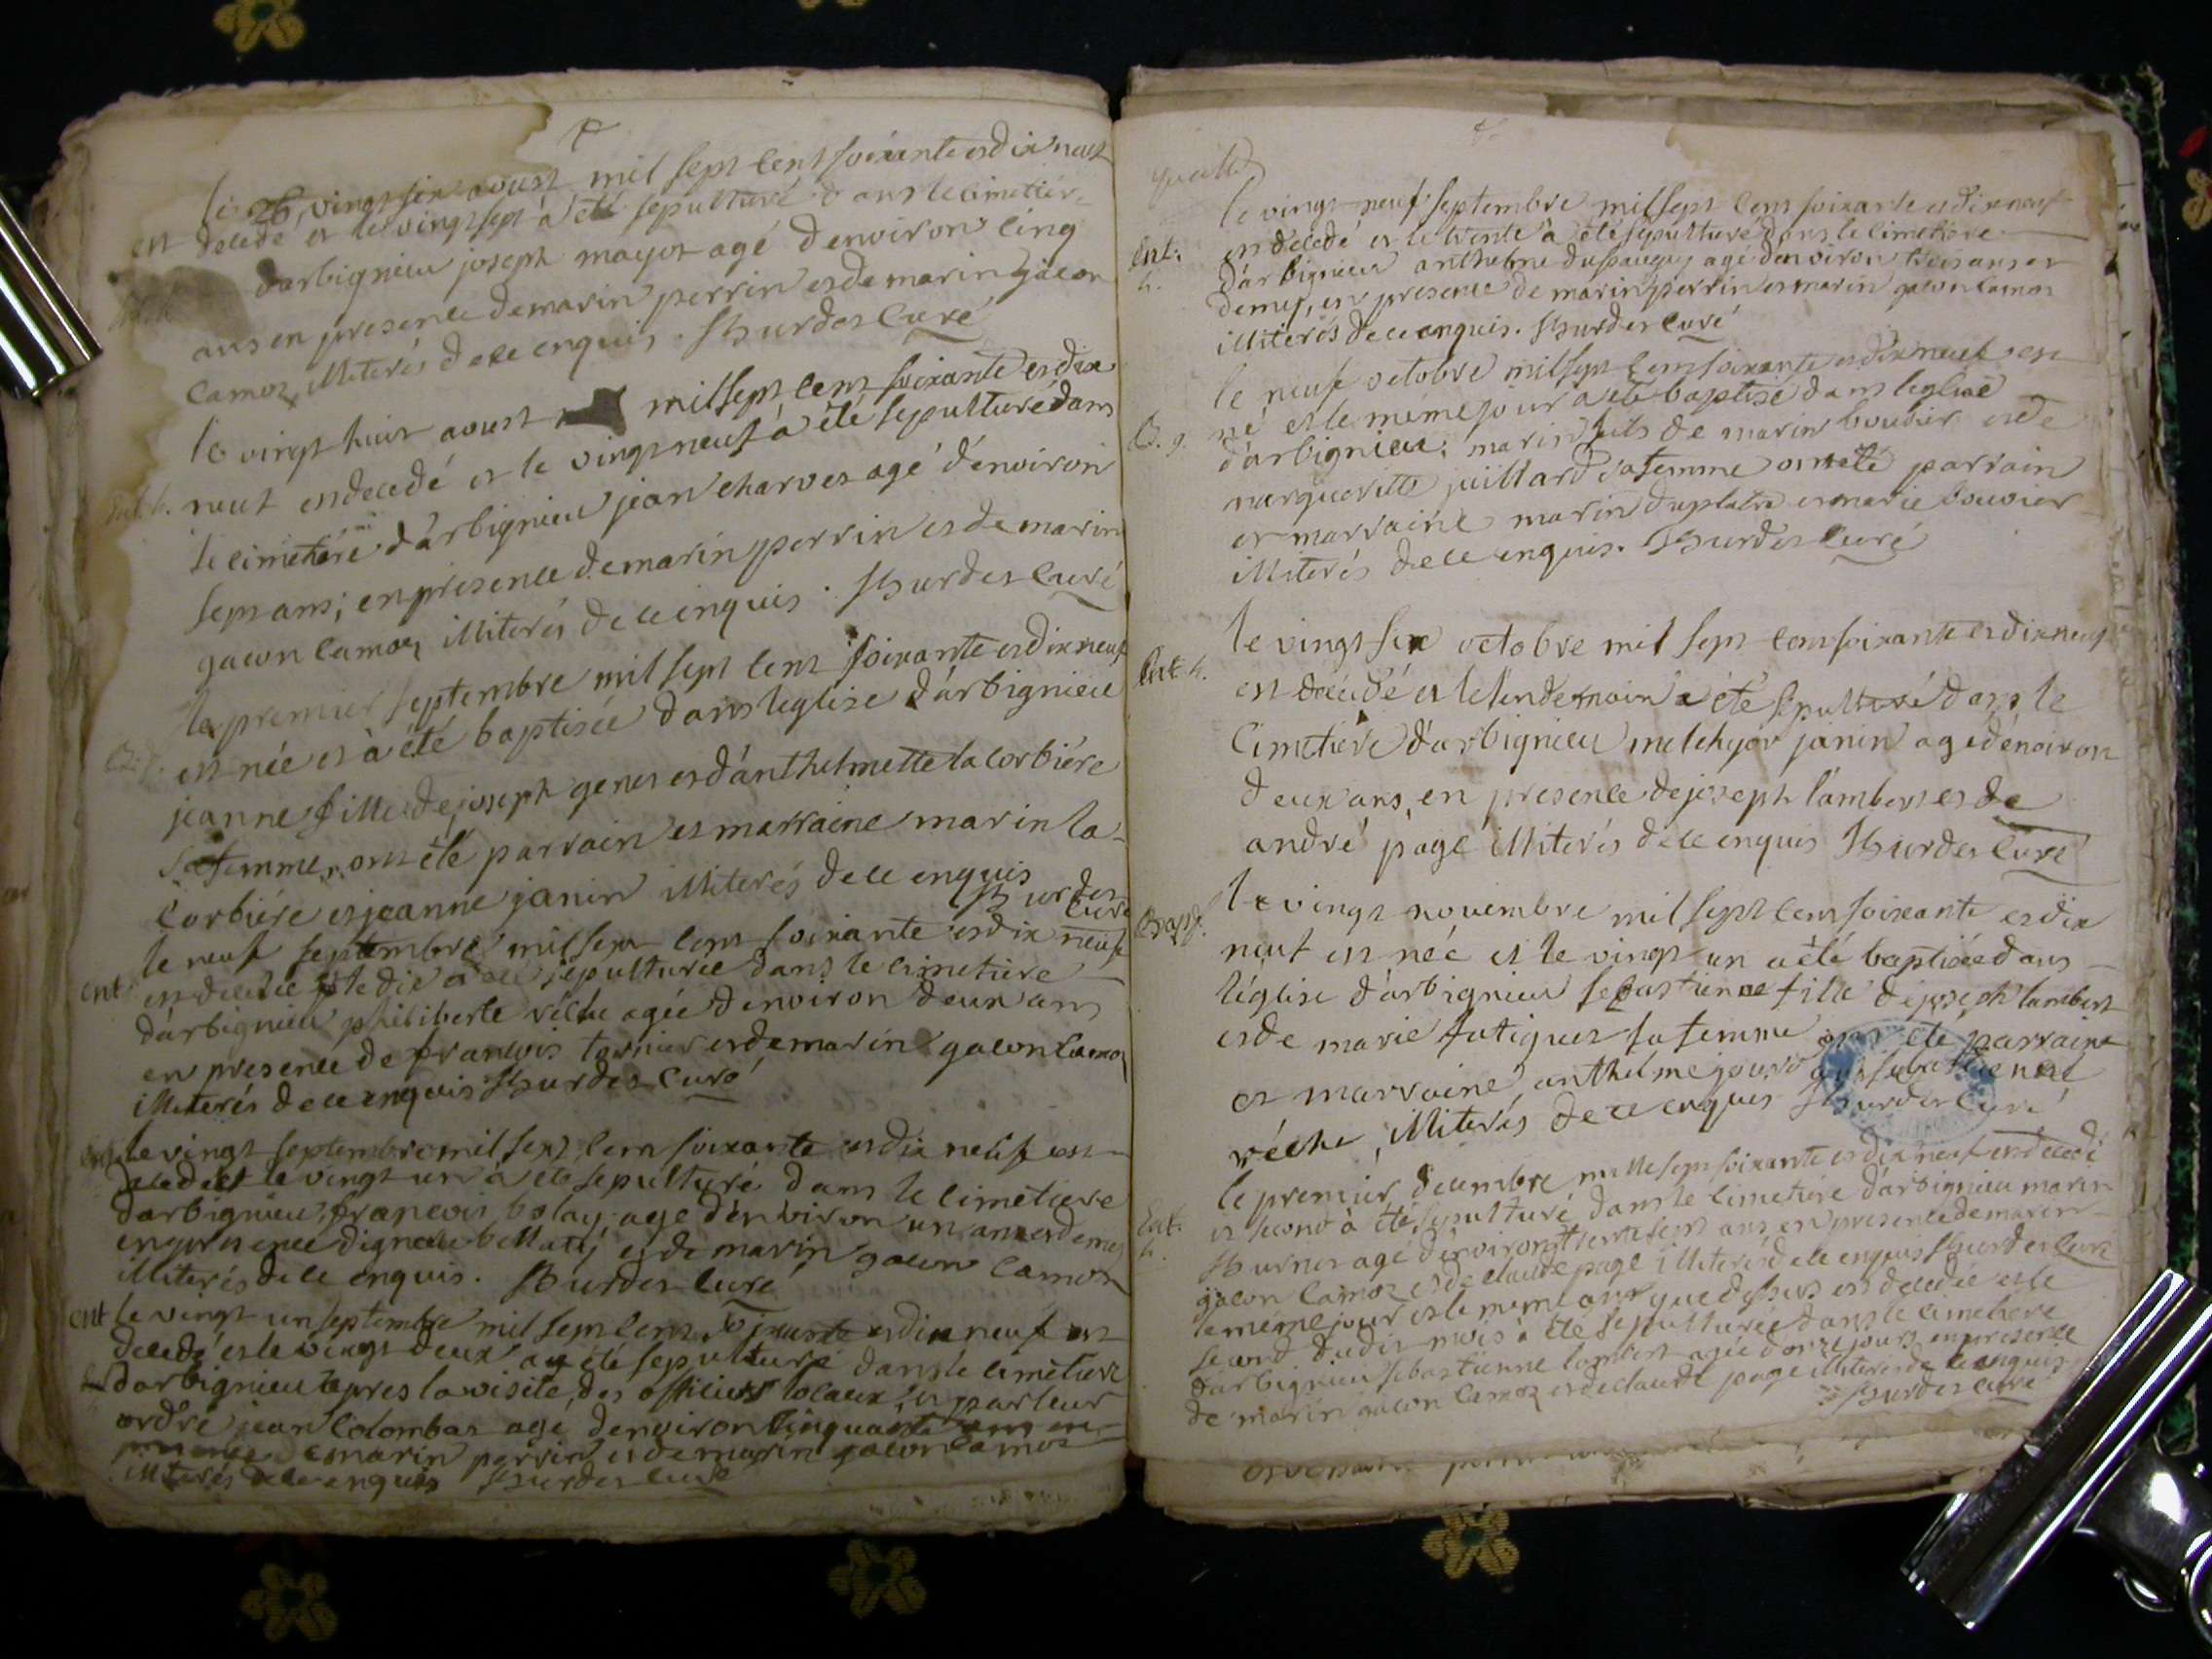 le 26, vingt six aoust mil sept cent soixante et dix neuf
est decedé et le vingt sept à été sepulturé dans le cimetiér
d'arbignieu joseph mayot agé denviron cinq
ans en presence de marin perrin et de marin gacon
Camoz illiterés de ce enquis. Hurdes Curé
le vingt huit aoust mil sept cent soixante et dix
Ent. h. neuf est decedé et le vingt neuf à été sepulturé dans
le cimetiére d'arbignieu jean charvet agé d'environ
sept ans; en presence de marin perrin et de marin
gacon Camoz illiterés de ce enquis. Hurdes Curé
le premier septembre mil sept cent soixante et dix neuf
B. f. est née et à été baptisée dans leglise d'arbignieu
jeanne fille de joseph genet et d'anthelmette la corbiére
sa femme, ont été parrain et marraine marin la
Corbiére et jeanne janin illiterés de ce enquis
Hurdes Curé
le neuf septembre mil sept cent soixante et dix neuf
Ent. est decedée et le dix à été sepulturée dans le cimetiere
d'arbignieu philiberte réche agée denviron deux ans
en presence de francois ternier et de marin gacon Camoz
illiterés de ce enquis Hurdes Curé
Ent. le vingt septembre mil sept cent soixante et dix neuf est
decedé et le vingt un à été sepulturé dans le cimetiere
darbignieu, francois bolay, agé d'environ un an et demy
en presence d'ignace bellaty et de marin gacon Camoz
illiterés de ce enquis. Hurdes Curé
Ent le vingt un septembre mil sept cent soixante et dix neuf est
decedé et le vingt deux à été sepulturé dans le cimetiere
d'arbignieu apres la visite, des officiers locaux, et par leur
ordre jean Colombat agé denviron cinquante ans en
presence de marin perrin et de marin gacon Camoz
illiterés de ce enquis Hurdes Curé
le vingt neuf septembre mil sept cent soixante et dix neuf
Ent. est decedé et le trente à été sepulturé dans le cimetiére
h. d'arbignieu anthelme agé denviron trois ans et
demy, en presence de marin perrin et marin gacon Camoz
illiterés de ce enquis. Hurdes Curé
le neuf octobre mil sept cent soixante et dix neuf est
né et le même jour à été baptisé dans leglise
B. g. d'arbignieu; marin fils de marin bouvier et de
marguerite juillard sa femme ont été parrain
et marraine marin duplatre et marie bouvier
illiterés de ce enquis. Hurdes Curé
le vingt six octobre mil sept cent soixante et dix neuf
Ent. h. est decedé et le lendemain à été sepulturé dans le
Cimetiére d'arbignieu melchyor janin agé d'environ
deux ans, en presence de joseph lambert et de
andré pagé illiterés de ce enquis Hurdes Curé
le vingt novembre mil sept cent soixante et dix
Bapt. f. neuf est née et le vingt un a été baptisée dans
l'église d'arbignieu sebastienne fille de joseph lambert
et de marie fatiguet sa femme ont été parrain
et marraine anthelme et sebastienne
réche, illiterés de ce enquis Hurdes Curé
le premier decembre mille sept soixante et dix neuf est decedé
Ent. et second à été sepulturé dans le cimetiére d'arbignieu marin
h. Hurnet agé d'environ trente sept ans en presence de marin
gacon Camoz et de claude pagé illiterés de ce enquis Hurdes Curé
le même jour et le même an que dessus est decedée et le
second dudit mois à été sepulturée dans le cimetiere
d'arbignieu sebastienne lambert agée d'onze jours en presence
de marin gacon Camoz et de claude pagé illiterés de ce enquis
Hurdes Curé